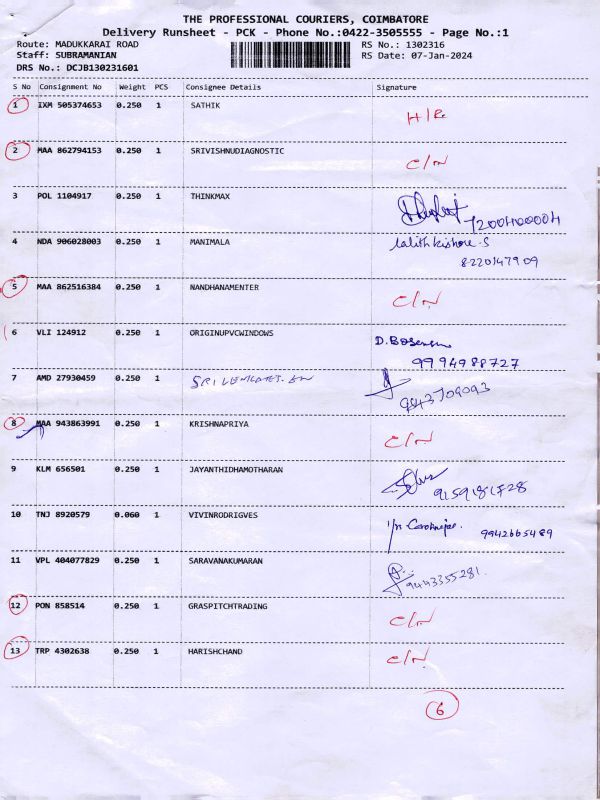 THE PROFESSIONAL COURIERS, COIMBATORE
Delivery Runsheet - PCK - Phone No.:0422-3505555 - Page No.:1
Route: MADUKKARAI ROAD RS No.: 1302316
Staff: SUBRAMANIAN RS Date: 07-Jan-2024
DRS No.: DCJB130231601
S No Consignment No Weight PCS Consignee Details Signature
1 IXM 505374653 0.250 1 SATHIK
2 MAA 862794153 0.250 1 SRIVISHNUDIAGNOSTIC C/N
3 POL 1104917 0.250 1 THINKMAX
4 NDA 906028003 0.250 1 MANIMALA Lalith Kishore.S
8220147909
5 MAA 862516384 0.250 1 NANDHANAMENTER C/N
6 VLI 124912 0.250 1 ORIGINUPVCWINDOWS
9994988727
7 AMD 27930459 0.250 1
9843709093
8 MAA 943863991 0.250 1 KRISHNAPRIYA C/N
9 KLM 656501 0.250 1 JAYANTHIDHAMOTHARAN
10 TNJ 8920579 0.060 1 VIVINRODRIGVES 9942665489
11 VPL 404077829 0.250 1 SARAVANAKUMARAN 9443355281
12 PON 858514 0.250 1 GRASPITCHTRADING C/N
13 TRP 4302638 0.250 1 HARISHCHAND C/N
6